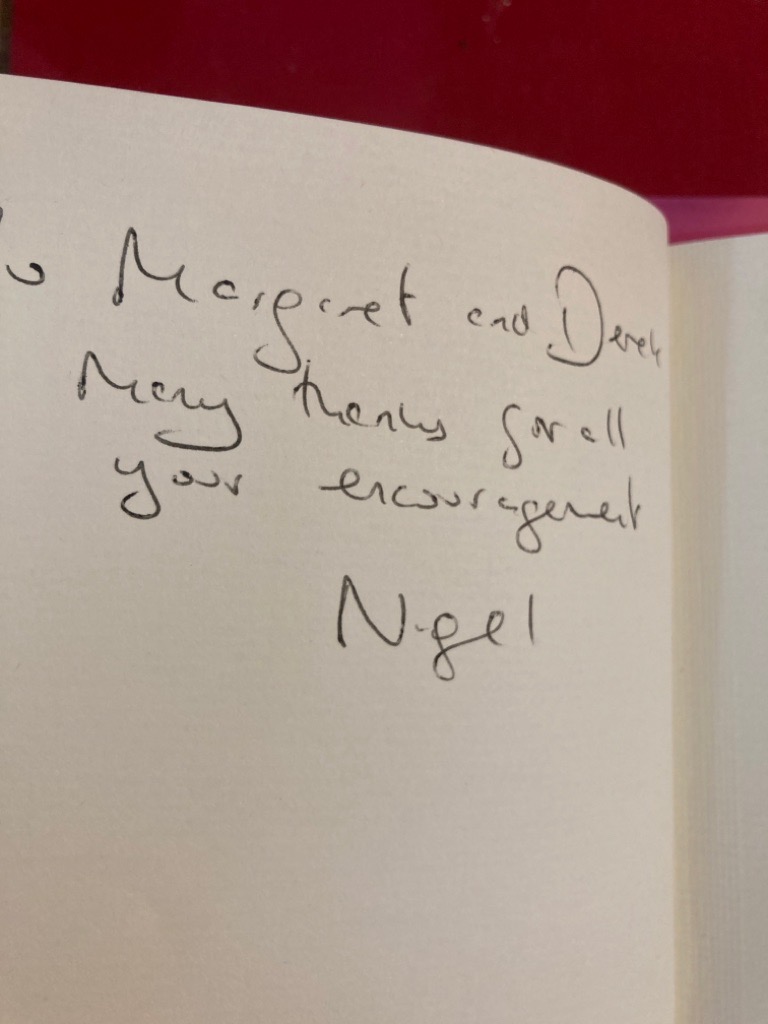 To Margaret and Derek
Many thanks for all
your encouragement
Nigel